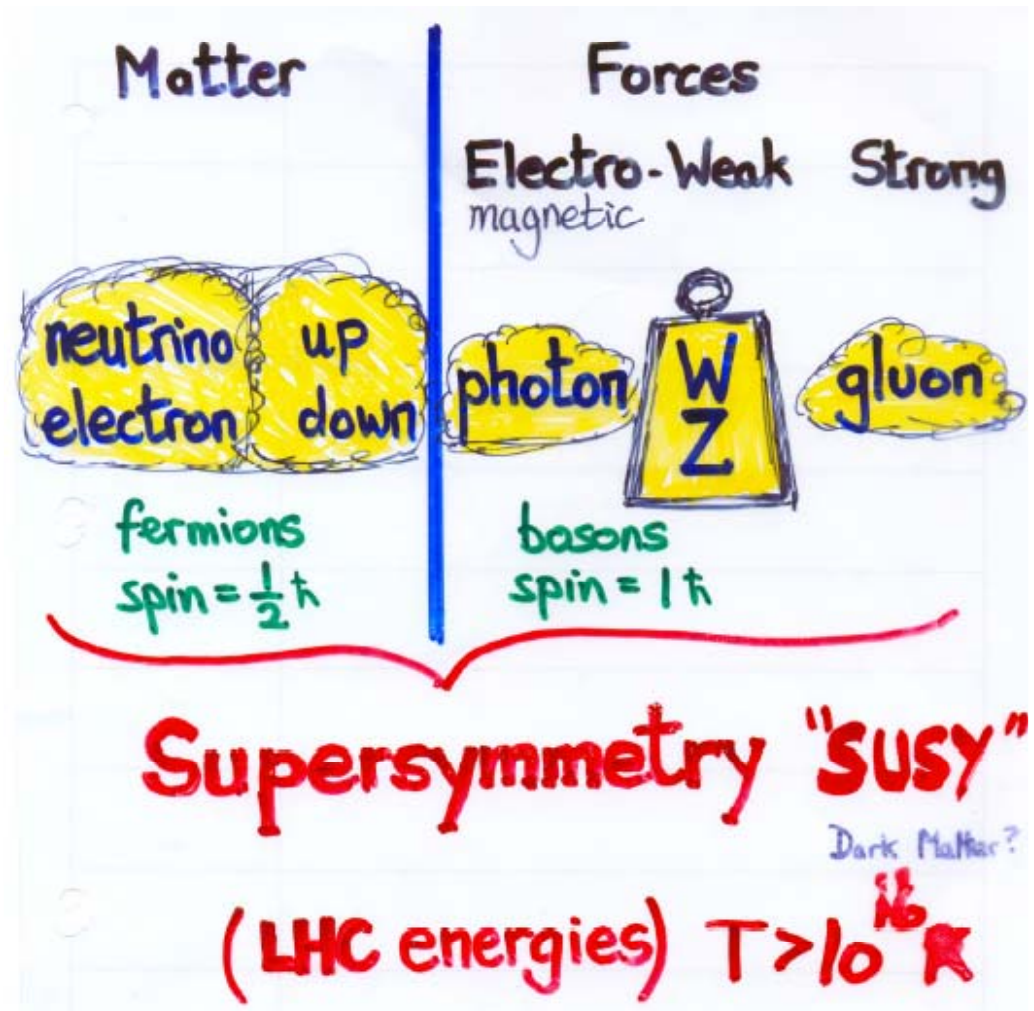 Matter
Forces
Electro-Weak Strong
magnetic
neutrino
electron
up
down
photon
W
Z
gluon
fermions
spin = ½ ħ
bosons
spin = 1 ħ
Supersymmetry "SUSY"
Dark Matter?
(LHC energies) T > 10 K